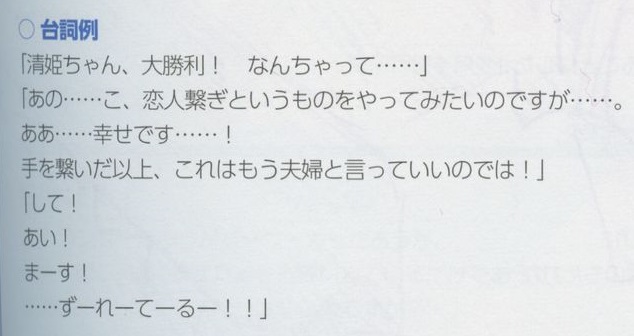 ○ 台詞例
「清姫ちゃん、大勝利！　なんちゃって……」
「あの……こ、恋人繋ぎというものをやってみたいのですが……。
ああ……幸せです……！
手を繋いだ以上、これはもう夫婦と言っていいのでは！」
「して！
あい！
まーす！
……ずーれーてーるー！！」